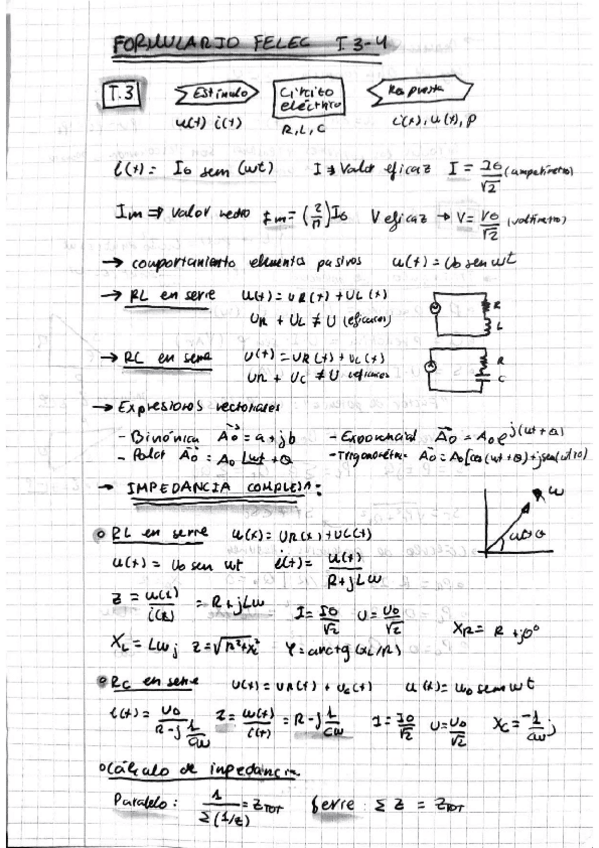 FORMULARIO FELEC T.3-4
T.3 Estímulo Circito eléctrico Respuesta
u(t) i(t) R, L, C i(t), u(t), P
i(t) = I0 sem (wt) I ⇒ Valor eficaz I = I0/√2 (amperímetro)
Im ⇒ Valor medio Im = (2/π) I0 V eficaz → V = V0/√2 (voltímetro)
→ comportamiento elementos pasivos u(t) = U0 sen wt
→ RL en serie u(t) = UR(t) + UL(t)
UR + UL ≠ U (eficaces)
R
L
→ RC en serie U(t) = UR(t) + UC(t)
UR + UC ≠ U eficaces
R
C
→ Expresiones vectoriales
- Binómica A0 = a + jb - Exponencial A0 = A0 e^j(wt + θ)
- Polar A0 = A0 |wt + θ - Trigonométrica A0 = A0[cos(wt + θ) + jsen(wt + θ)
→ IMPEDANCIA COMPLEJA:
RL en serie u(t) = UR(t) + UL(t)
w
wt + θ
u(t) = U0 sen wt i(t) = u(t)/R + jLw
Z = u(t)/i(t) = R + jLw I = I0/√2 U = U0/√2 XR = R + j0
XL = Lw j Z = √R² + XL² φ = arctg (XL/R)
RC en serie U(t) = UR(t) + UC(t) u(t) = U0 sem wt
i(t) = U0/R - j 1/Cw Z = u(t)/i(t) = R - j 1/Cw I = I0/√2 U = U0/√2 XC = -1/Cw j
Cálculo de impedancia
Paralelo: 1/Σ(1/Z) = ZTOT Serie: Σ Z = ZTOT